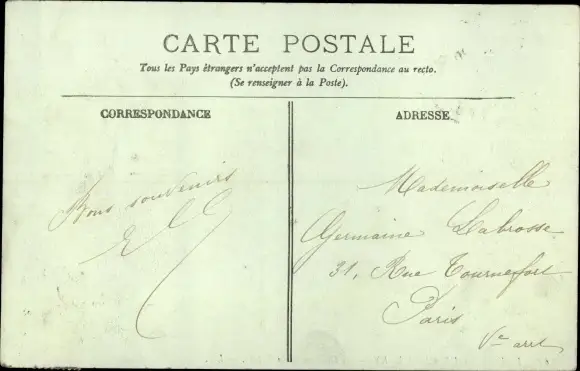 CARTE POSTALE
Tous les Pays étrangers n'acceptent pas la Correspondance au recto.
(Se renseigner à la Poste).
CORRESPONDANCE
ADRESSE
Bons souvenirs
Mademoiselle
Germaine Labrosse
31, Rue Tournefort
Paris
Ve arrt